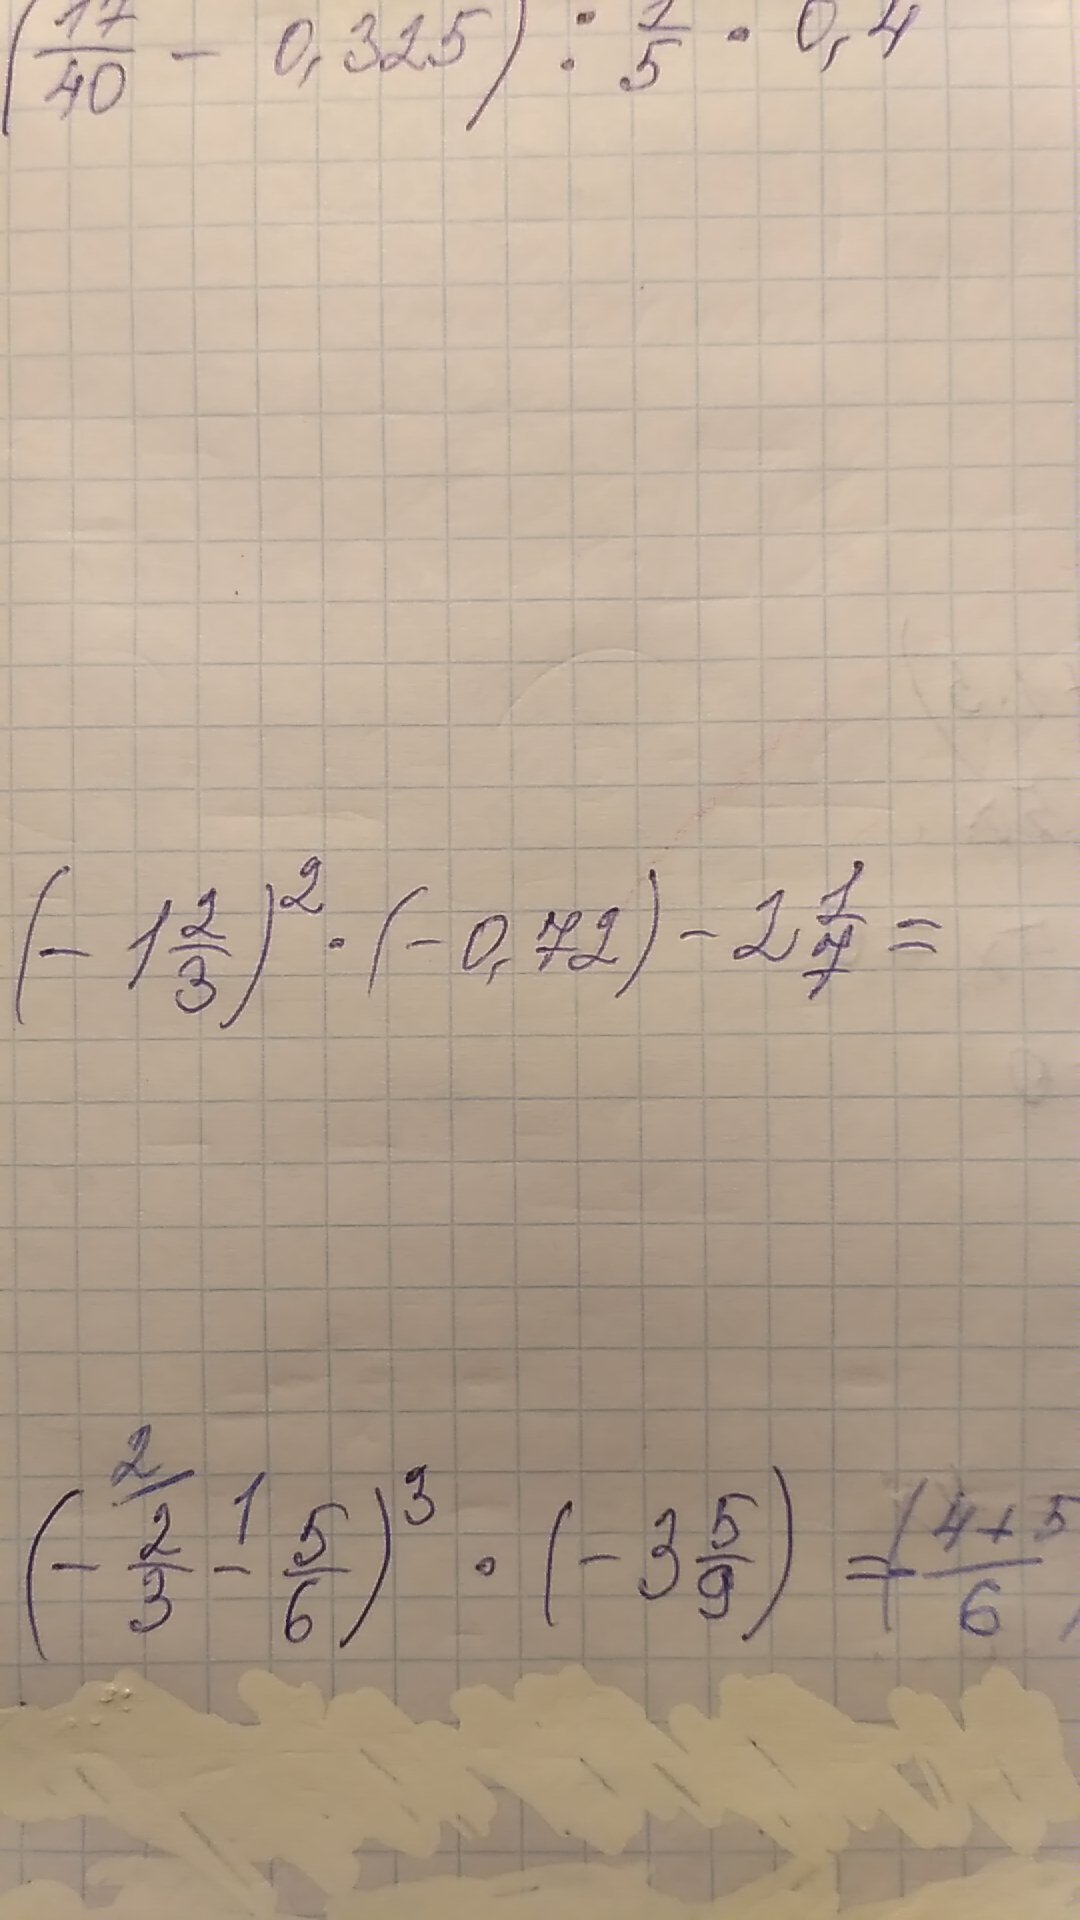 (17/40 - 0,325) : 1/5 · 0,4
(- 1 2/3)² · (-0,72) - 2 1/7 =
2 1
(- 2/3 - 5/6)³ · (- 3 5/9) = (- 4+5/6)